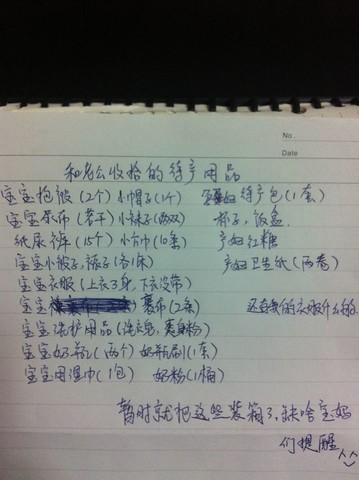 No.
Date
和老公收拾的待产用品
宝宝抱被(2个) 小帽子(1个) 孕妇待产包(1套)
宝宝尿布(若干) 小袜子(两双) 杯子,饭盒
纸尿裤(15个) 小方巾(10条) 产妇红糖
宝宝小被子,褥子(各1床) 产妇卫生纸(两卷)
宝宝衣服(上衣3身,下衣没带)
宝宝 裹布(2条) 还有我的衣服什么的
宝宝洗护用品(洗衣皂,爽身粉)
宝宝奶瓶(两个) 奶瓶刷(1套)
宝宝用湿巾(1包) 奶粉(1桶)
暂时就把这些装箱了,缺啥宝妈
们提醒^^